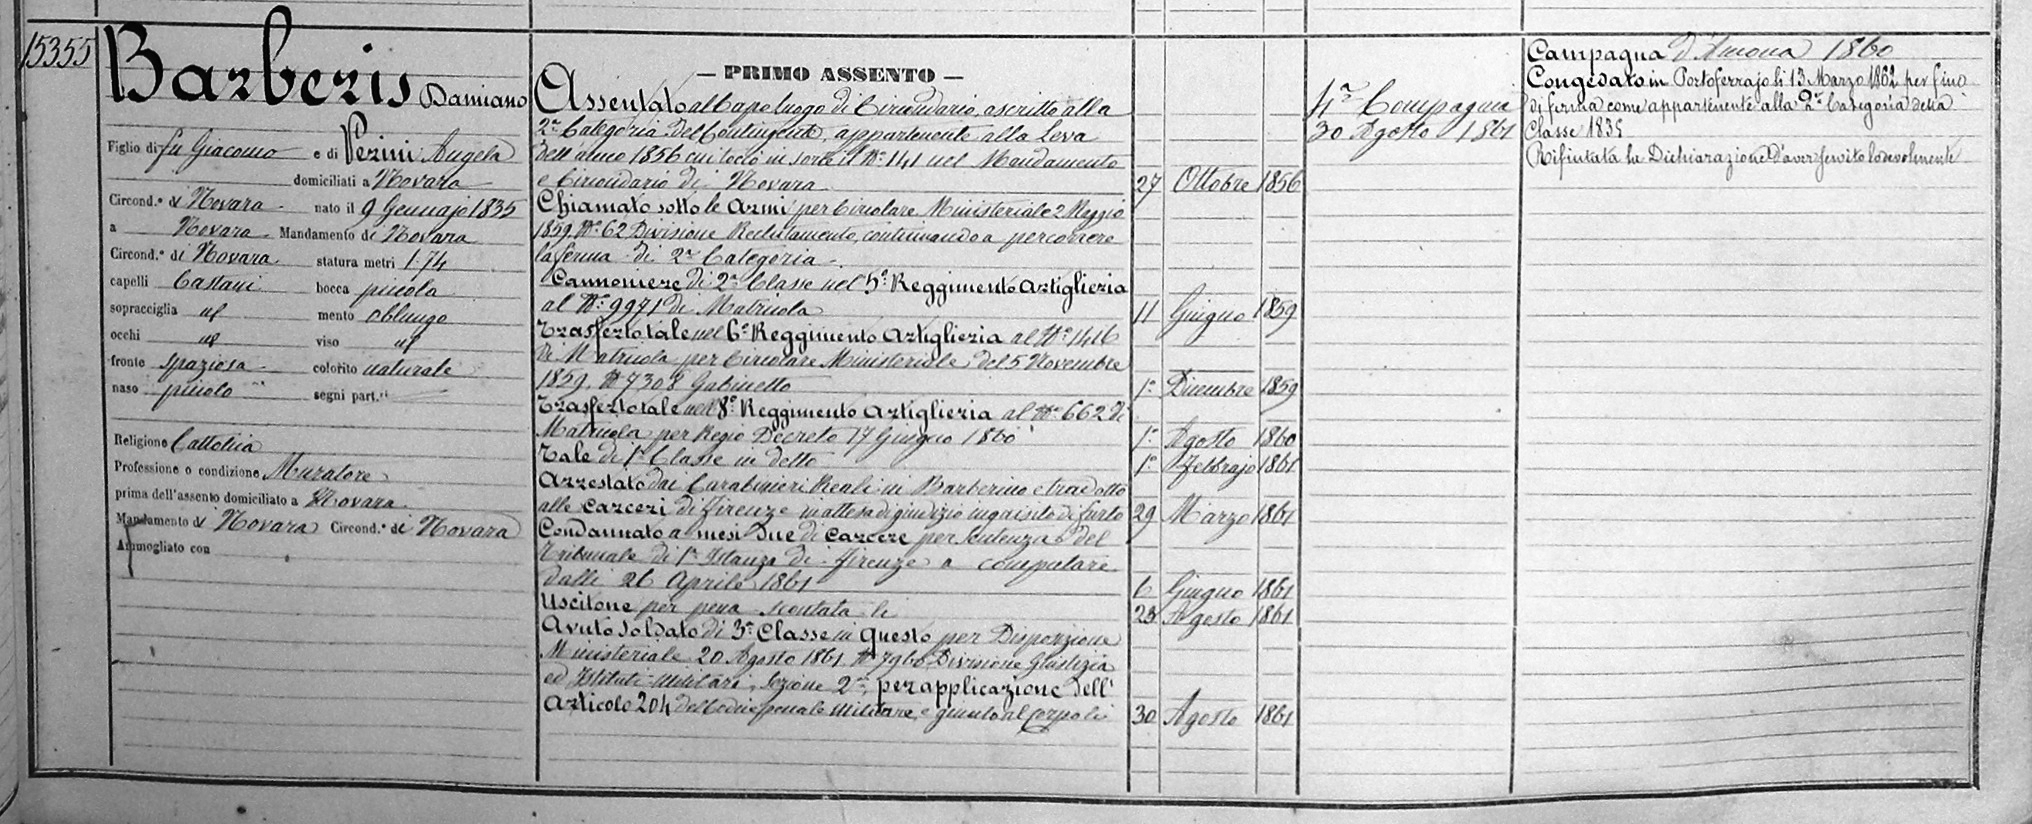 15355
Barberis Damiano
Figlio di fu Giacomo e di Verini Angela
domiciliati a Novara
Circond.º di Novara nato il 9 Gennajo 1835
a Novara Mandamento di Novara
Circond.º di Novara statura metri 1:74
capelli Castani bocca piccola
sopracciglia id mento oblungo
occhi id viso id
fronte spaziosa colorito naturale
naso piccolo segni part.
Religione Cattolica
Professione o condizione Muratore
prima dell'assento domiciliato a Novara
Mandamento di Novara Circond.º di Novara
Ammogliato con
— PRIMO ASSENTO —
Assentato al Capoluogo di Circondario, ascritto alla
2ª Categoria del Contingente, appartenente alla Leva
dell'anno 1856 cui toccò in sorte il Nº 141 nel Mandamento
e Circondario di Novara 27 Ottobre 1856
Chiamato sotto le Armi per Circolare Ministeriale 2 Maggio
1859 Nº 62 Divisione Reclutamento, continuando a percorrere
la ferma di 2ª Categoria
Cannoniere di 2ª Classe nel 5º Reggimento Artiglieria
al Nº 9971 di Matricola 11 Giugno 1859
Trasferto tale nel 6º Reggimento Artiglieria al Nº 1416
di Matricola per Circolare Ministeriale del 5 Novembre
1859 Nº 7308 Gabinetto 1º Dicembre 1859
Trasferto tale nell'8º Reggimento Artiglieria al Nº 662 di
Matricola per Regio Decreto 17 Giugno 1860 1º Agosto 1860
Tale di 1ª Classe in detto 1º Febbrajo 1861
Arrestato dai Carabinieri Reali in Barberino e tradotto
alle Carceri di Firenze in attesa di giudizio inquisito di furto 29 Marzo 1861
Condannato a mesi Due di Carcere per sentenza del
Tribunale di 1ª Istanza di Firenze a computare
dalli 26 Aprile 1861 6 Giugno 1861
Uscitone per pena scontata li Agosto 1861
Avuto Soldato di 3ª Classe in Questo per Disposizione
Ministeriale 20 Agosto 1861 Nº 7960 Divisione Giustizia
ed Istituti Militari, Sezione 2ª, per applicazione dell'
Articolo 204 del Codice penale Militare, e giunto al Corpo li 30 Agosto 1861
4ª Compagnia
30 Agosto 1861
Campagna d'Ancona 1860
Congedato in Portoferrajo li 13 Marzo 1862 per fine
di ferma come appartenente alla 2ª Categoria della
Classe 1835
Rifiutata la Dichiarazione d'aver servito lodevolmente